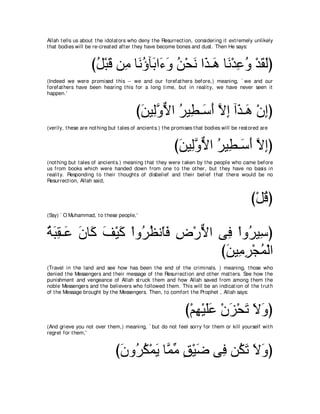 Allah tells us about the idolators who deny the Resurrection, considering it extremely unlikely
that bodies will be re-created after they have become bones and dust. Then He says:
(لَقَدْ وُعِدْنَا هَـذَا نَحْنُ وَءَابَآؤُنَا مِن قَبْلُ)
(Indeed we were promised this -- we and our forefathers before,) meaning, `we and our
forefathers have been hearing this for a long time, but in reality, we have never seen it
happen.'
(إِنْ هَـذَآ إِلاَّ أَسَـطِيرُ الاٌّوَّلِينَ)
(verily, these are nothing but tales of ancients.) the promises that bodies will be restored are
(إِلاَّ أَسَـطِيرُ الاٌّوَّلِينَ)
(nothing but tales of ancients.) meaning that they were taken by the people who came before
us from books which were handed down from one to the other, but they have no basis in
reality. Responding to their thoughts of disbelief and their belief that there would be no
Resurrection, Allah said,
(قُلْ)
(Say) `O Muhammad, to these people,'
(سِيرُواْ فِى الاٌّرْضِ فَاْنظُرُواْ كَيْفَ كَانَ عَـقِبَةُ
الْمُجْرِمِينَ)
(Travel in the land and see how has been the end of the criminals.) meaning, those who
denied the Messengers and their message of the Resurrection and other matters. See how the
punishment and vengeance of Allah struck them and how Allah saved from among them the
noble Messengers and the believers who followed them. This will be an indication of the truth
of the Message brought by the Messengers. Then, to comfort the Prophet , Allah says:
(وَلاَ تَحْزَنْ عَلَيْهِمْ)
(And grieve you not over them,) meaning, `but do not feel sorry for them or kill yourself with
regret for them,'
(وَلاَ تَكُن فِى ضَيْقٍ مِّمَّا يَمْكُرُونَ)